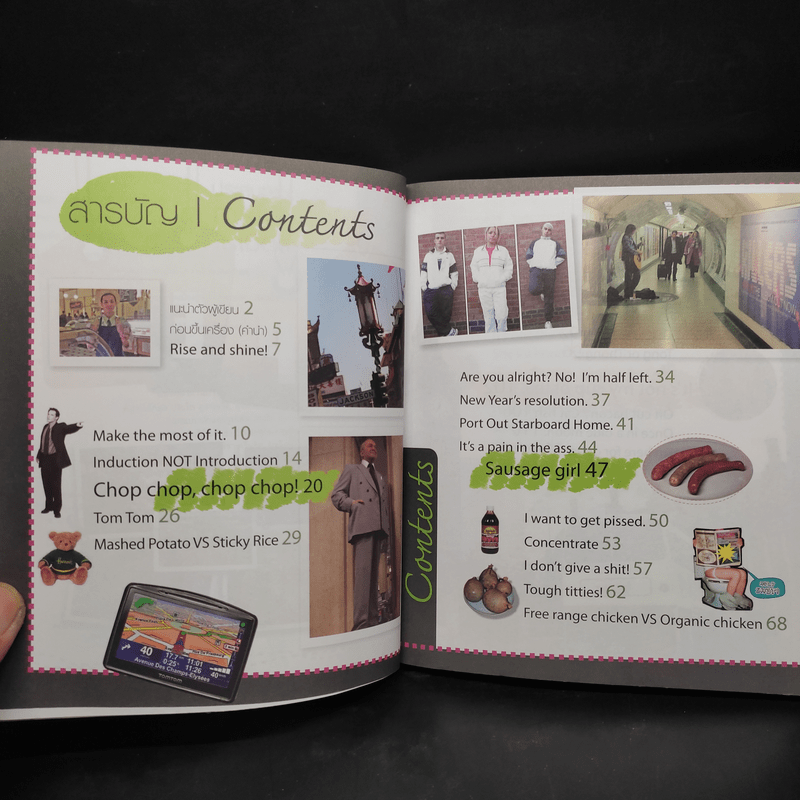 สารบัญ | Contents
แนะนำตัวผู้เขียน 2
ก่อนขึ้นเครื่อง (คำนำ) 5
Rise and shine! 7
Make the most of it. 10
Induction NOT Introduction 14
Chop chop, chop chop! 20
Tom Tom 26
Mashed Potato VS Sticky Rice 29
JACKSON
Harrods
40
17.7
11:01
0:25
11:26
40
Avenue Des Champs-Elysées
TOMTOM
Contents
Are you alright? No! I'm half left. 34
New Year's resolution. 37
Port Out Starboard Home. 41
It's a pain in the ass. 44
Sausage girl 47
I want to get pissed. 50
Concentrate 53
I don't give a shit! 57
Tough titties! 62
Free range chicken VS Organic chicken 68